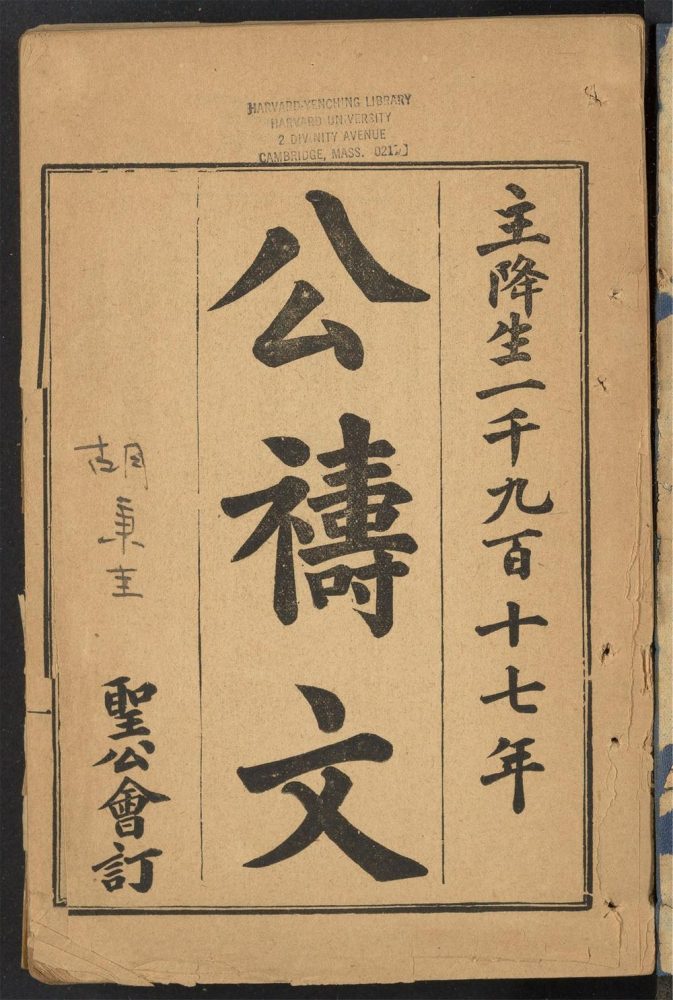 HARVARD-YENCHING LIBRARY
HARVARD UNIVERSITY
2 DIVINITY AVENUE
CAMBRIDGE, MASS.
主降生一千九百十七年
公禱文
胡秉圭
聖公會訂